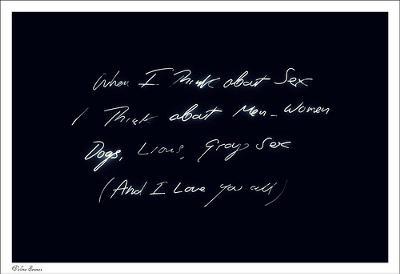 When I Think about Sex
I Think about Men - Women
Dogs, Lions, Group Sex
(And I Love you all)